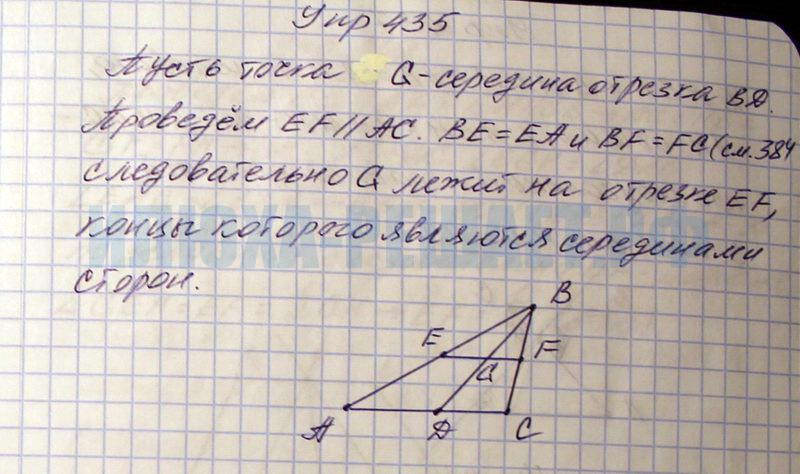 Упр 435
Пусть точка G-середина отрезка BD.
Проведём EF//AC. BE=EA и BF=FC(см.384
следовательно G лежит на отрезке EF,
концы которого являются серединами
сторон.
B
E
F
G
A
D
C